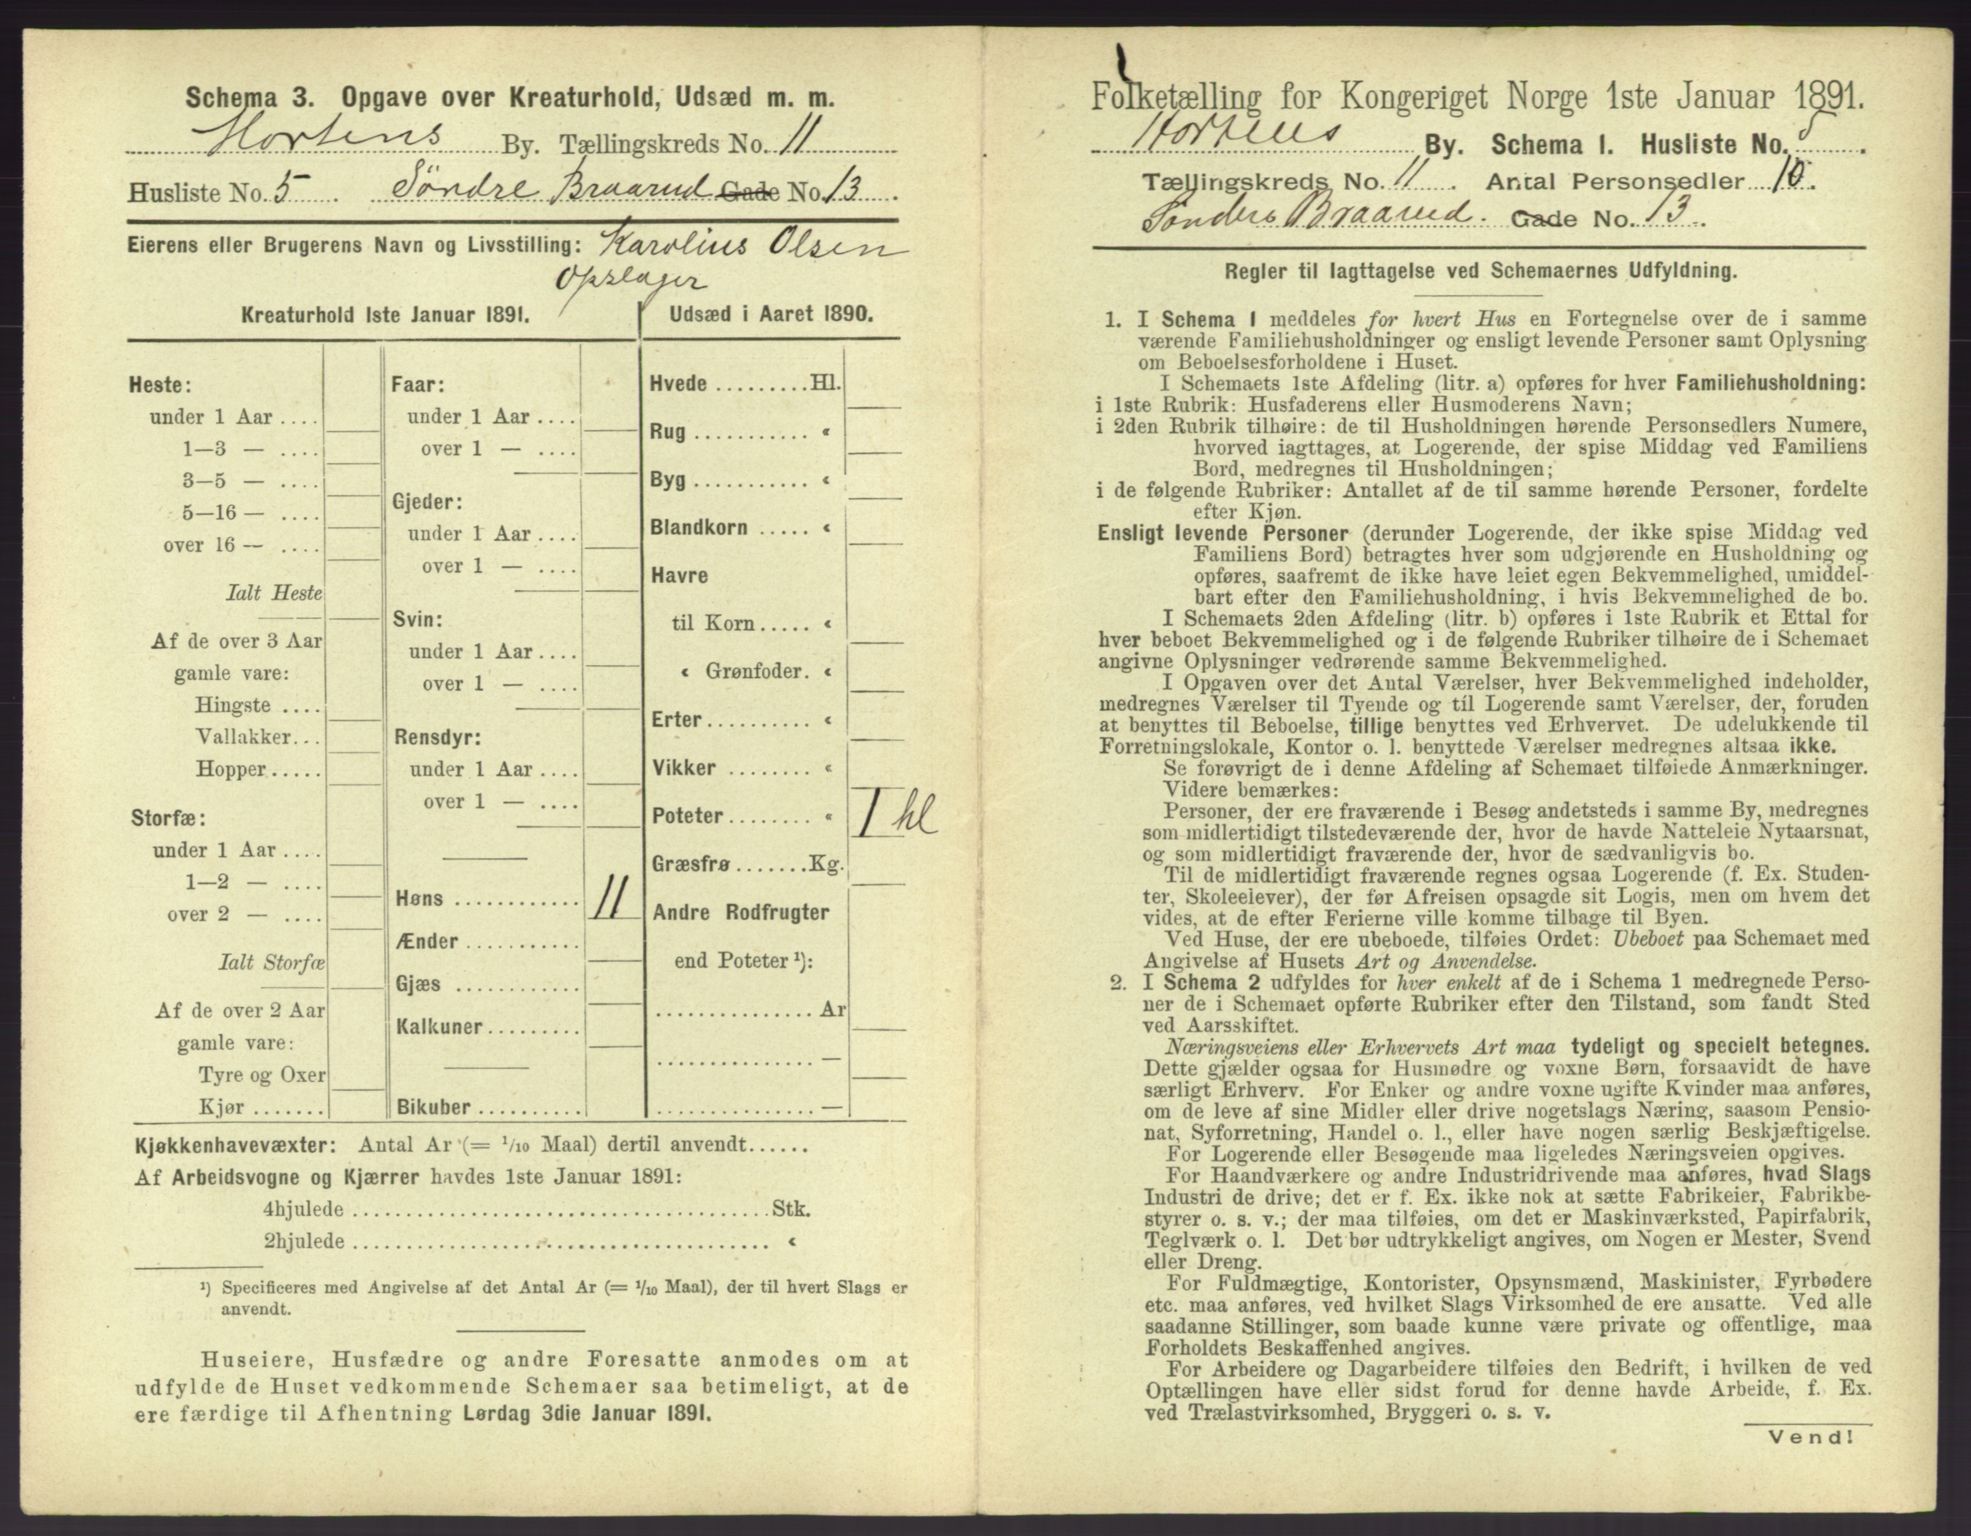 Schema 3. Opgave over Kreaturhold, Udsæd m. m.
Hortens By. Tællingskreds No. 11
Husliste No. 5 Søndre Braarud Gade No. 13
Eierens eller Brugerens Navn og Livsstilling: Karolius Olsen
Opslager
Kreaturhold 1ste Januar 1891.
Heste:
under 1 Aar ....
1—3 — ....
3—5 — ....
5—16 — ....
over 16 — ....
Ialt Heste
Af de over 3 Aar
gamle vare:
Hingste ....
Vallakker...
Hopper.....
Storfæ:
under 1 Aar ....
1—2 — ....
over 2 — ....
Ialt Storfæ
Af de over 2 Aar
gamle vare:
Tyre og Oxer
Kjør .......
Faar:
under 1 Aar ....
over 1 — ....
Gjeder:
under 1 Aar ....
over 1 — ....
Svin:
under 1 Aar ....
over 1 — ....
Rensdyr:
under 1 Aar ....
over 1 — ....
Høns ............ 11
Ænder ...........
Gjæs ............
Kalkuner.........
Bikuber ..........
Udsæd i Aaret 1890.
Hvede .........Hl.
Rug ........... «
Byg ........... «
Blandkorn ..... «
Havre
til Korn..... «
« Grønfoder. «
Erter.......... «
Vikker ........ «
Poteter........ « 1 hl
Græsfrø .......Kg.
Andre Rodfrugter
end Poteter ¹):
............... Ar
............... —
............... —
Kjøkkenhavevæxter: Antal Ar (= 1/10 Maal) dertil anvendt......
Af Arbeidsvogne og Kjærrer havdes 1ste Januar 1891:
4hjulede .......................................Stk.
2hjulede ....................................... «
¹) Specificeres med Angivelse af det Antal Ar (= 1/10 Maal), der til hvert Slags er
anvendt.
Huseiere, Husfædre og andre Foresatte anmodes om at
udfylde de Huset vedkommende Schemaer saa betimeligt, at de
ere færdige til Afhentning Lørdag 3die Januar 1891.
Folketælling for Kongeriget Norge 1ste Januar 1891.
Hortens By. Schema 1. Husliste No. 5
Tællingskreds No. 11. Antal Personsedler 10.
Sønders Braarud. Gade No. 13.
Regler til Iagttagelse ved Schemaernes Udfyldning.
1. I Schema 1 meddeles for hvert Hus en Fortegnelse over de i samme
værende Familiehusholdninger og ensligt levende Personer samt Oplysning
om Beboelsesforholdene i Huset.
I Schemaets 1ste Afdeling (litr. a) opføres for hver Familiehusholdning:
i 1ste Rubrik: Husfaderens eller Husmoderens Navn;
i 2den Rubrik tilhøire: de til Husholdningen hørende Personsedlers Numere,
hvorved iagttages, at Logerende, der spise Middag ved Familiens
Bord, medregnes til Husholdningen;
i de følgende Rubriker: Antallet af de til samme hørende Personer, fordelte
efter Kjøn.
Ensligt levende Personer (derunder Logerende, der ikke spise Middag ved
Familiens Bord) betragtes hver som udgjørende en Husholdning og
opføres, saafremt de ikke have leiet egen Bekvemmelighed, umiddel-
bart efter den Familiehusholdning, i hvis Bekvemmelighed de bo.
I Schemaets 2den Afdeling (litr. b) opføres i 1ste Rubrik et Ettal for
hver beboet Bekvemmelighed og i de følgende Rubriker tilhøire de i Schemaet
angivne Oplysninger vedrørende samme Bekvemmelighed.
I Opgaven over det Antal Værelser, hver Bekvemmelighed indeholder,
medregnes Værelser til Tyende og til Logerende samt Værelser, der, foruden
at benyttes til Beboelse, tillige benyttes ved Erhvervet. De udelukkende til
Forretningslokale, Kontor o. l. benyttede Værelser medregnes altsaa ikke.
Se forøvrigt de i denne Afdeling af Schemaet tilføiede Anmærkninger.
Videre bemærkes:
Personer, der ere fraværende i Besøg andetsteds i samme By, medregnes
som midlertidigt tilstedeværende der, hvor de havde Natteleie Nytaarsnat,
og som midlertidigt fraværende der, hvor de sædvanligvis bo.
Til de midlertidigt fraværende regnes ogsaa Logerende (f. Ex. Studen-
ter, Skoleelever), der før Afreisen opsagde sit Logis, men om hvem det
vides, at de efter Ferierne ville komme tilbage til Byen.
Ved Huse, der ere ubeboede, tilføies Ordet: Ubeboet paa Schemaet med
Angivelse af Husets Art og Anvendelse.
2. I Schema 2 udfyldes for hver enkelt af de i Schema 1 medregnede Perso-
ner de i Schemaet opførte Rubriker efter den Tilstand, som fandt Sted
ved Aarsskiftet.
Næringsveiens eller Erhvervets Art maa tydeligt og specielt betegnes.
Dette gjælder ogsaa for Husmødre og voxne Børn, forsaavidt de have
særligt Erhverv. For Enker og andre voxne ugifte Kvinder maa anføres,
om de leve af sine Midler eller drive nogetslags Næring, saasom Pensio-
nat, Syforretning, Handel o. l., eller have nogen særlig Beskjæftigelse.
For Logerende eller Besøgende maa ligeledes Næringsveien opgives.
For Haandværkere og andre Industridrivende maa anføres, hvad Slags
Industri de drive; det er f. Ex. ikke nok at sætte Fabrikeier, Fabrikbe-
styrer o. s. v.; der maa tilføies, om det er Maskinværksted, Papirfabrik,
Teglværk o. l. Det bør udtrykkeligt angives, om Nogen er Mester, Svend
eller Dreng.
For Fuldmægtige, Kontorister, Opsynsmænd, Maskinister, Fyrbødere
etc. maa anføres, ved hvilket Slags Virksomhed de ere ansatte. Ved alle
saadanne Stillinger, som baade kunne være private og offentlige, maa
Forholdets Beskaffenhed angives.
For Arbeidere og Dagarbeidere tilføies den Bedrift, i hvilken de ved
Optællingen have eller sidst forud for denne havde Arbeide, f. Ex.
ved Trælastvirksomhed, Bryggeri o. s. v.
Vend!